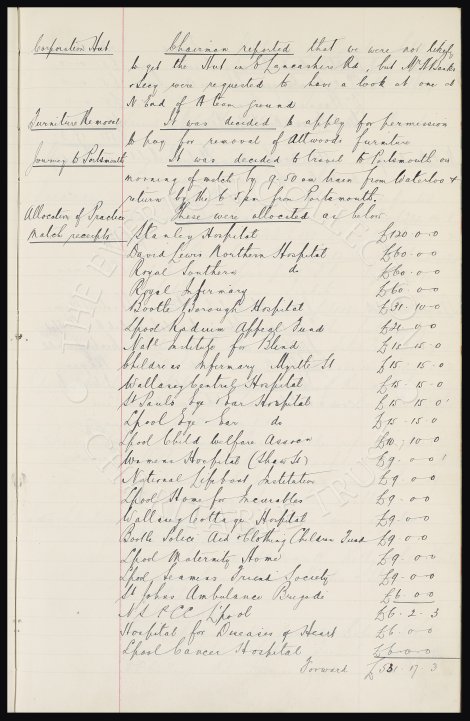 Corporation Hut Chairman reported that we were not likely
to get the Hut in E Lancashire Rd, but Mr
& Secy were requested to have a look at one at
N End of A team ground
Furniture Removal It was decided to apply for permission
to pay for removal of Attwoods furniture
Journey to Portsmouth It was decided to travel to Portsmouth on
morning of match by 9.50 am train from Waterloo &
return by the 6.5 pm from Portsmouth.
Allocation of Practice These were allocated as below
match receipts Stanley Hospital £120.0.0
David Lewis Northern Hospital £60.0.0
Royal Southern do £60.0.0
Royal Infirmary £60.0.0
Bootle Borough Hospital £31.10.0
Lpool Radium Appeal Fund £21.0.0
Natl Institute for Blind £15.15.0
Childrens Infirmary Myrtle St £15.15.0
Wallasey Central Hospital £15.15.0
St Pauls Eye & Ear Hospital £15.15.0
Lpool Eye & Ear do £15.15.0
Lpool Child Welfare Assocn £10.10.0
Womens Hospital (Shaw St) £9.0.0
National Lifeboat Institution £9.0.0
Lpool Home for Incurables £9.0.0
Wallasey Cottage Hospital £9.0.0
Bootle Police Aid & Clothing Children Fund £9.0.0
Lpool Maternity Home £9.0.0
Lpool Seamens Friend Society £9.0.0
St Johns Ambulance Brigade £6.0.0
N S P C C L'pool £6.2.3
Hospital for Diseases of Heart £6.0.0
Lpool Cancer Hospital £6.0.0
Forward £531.17.3